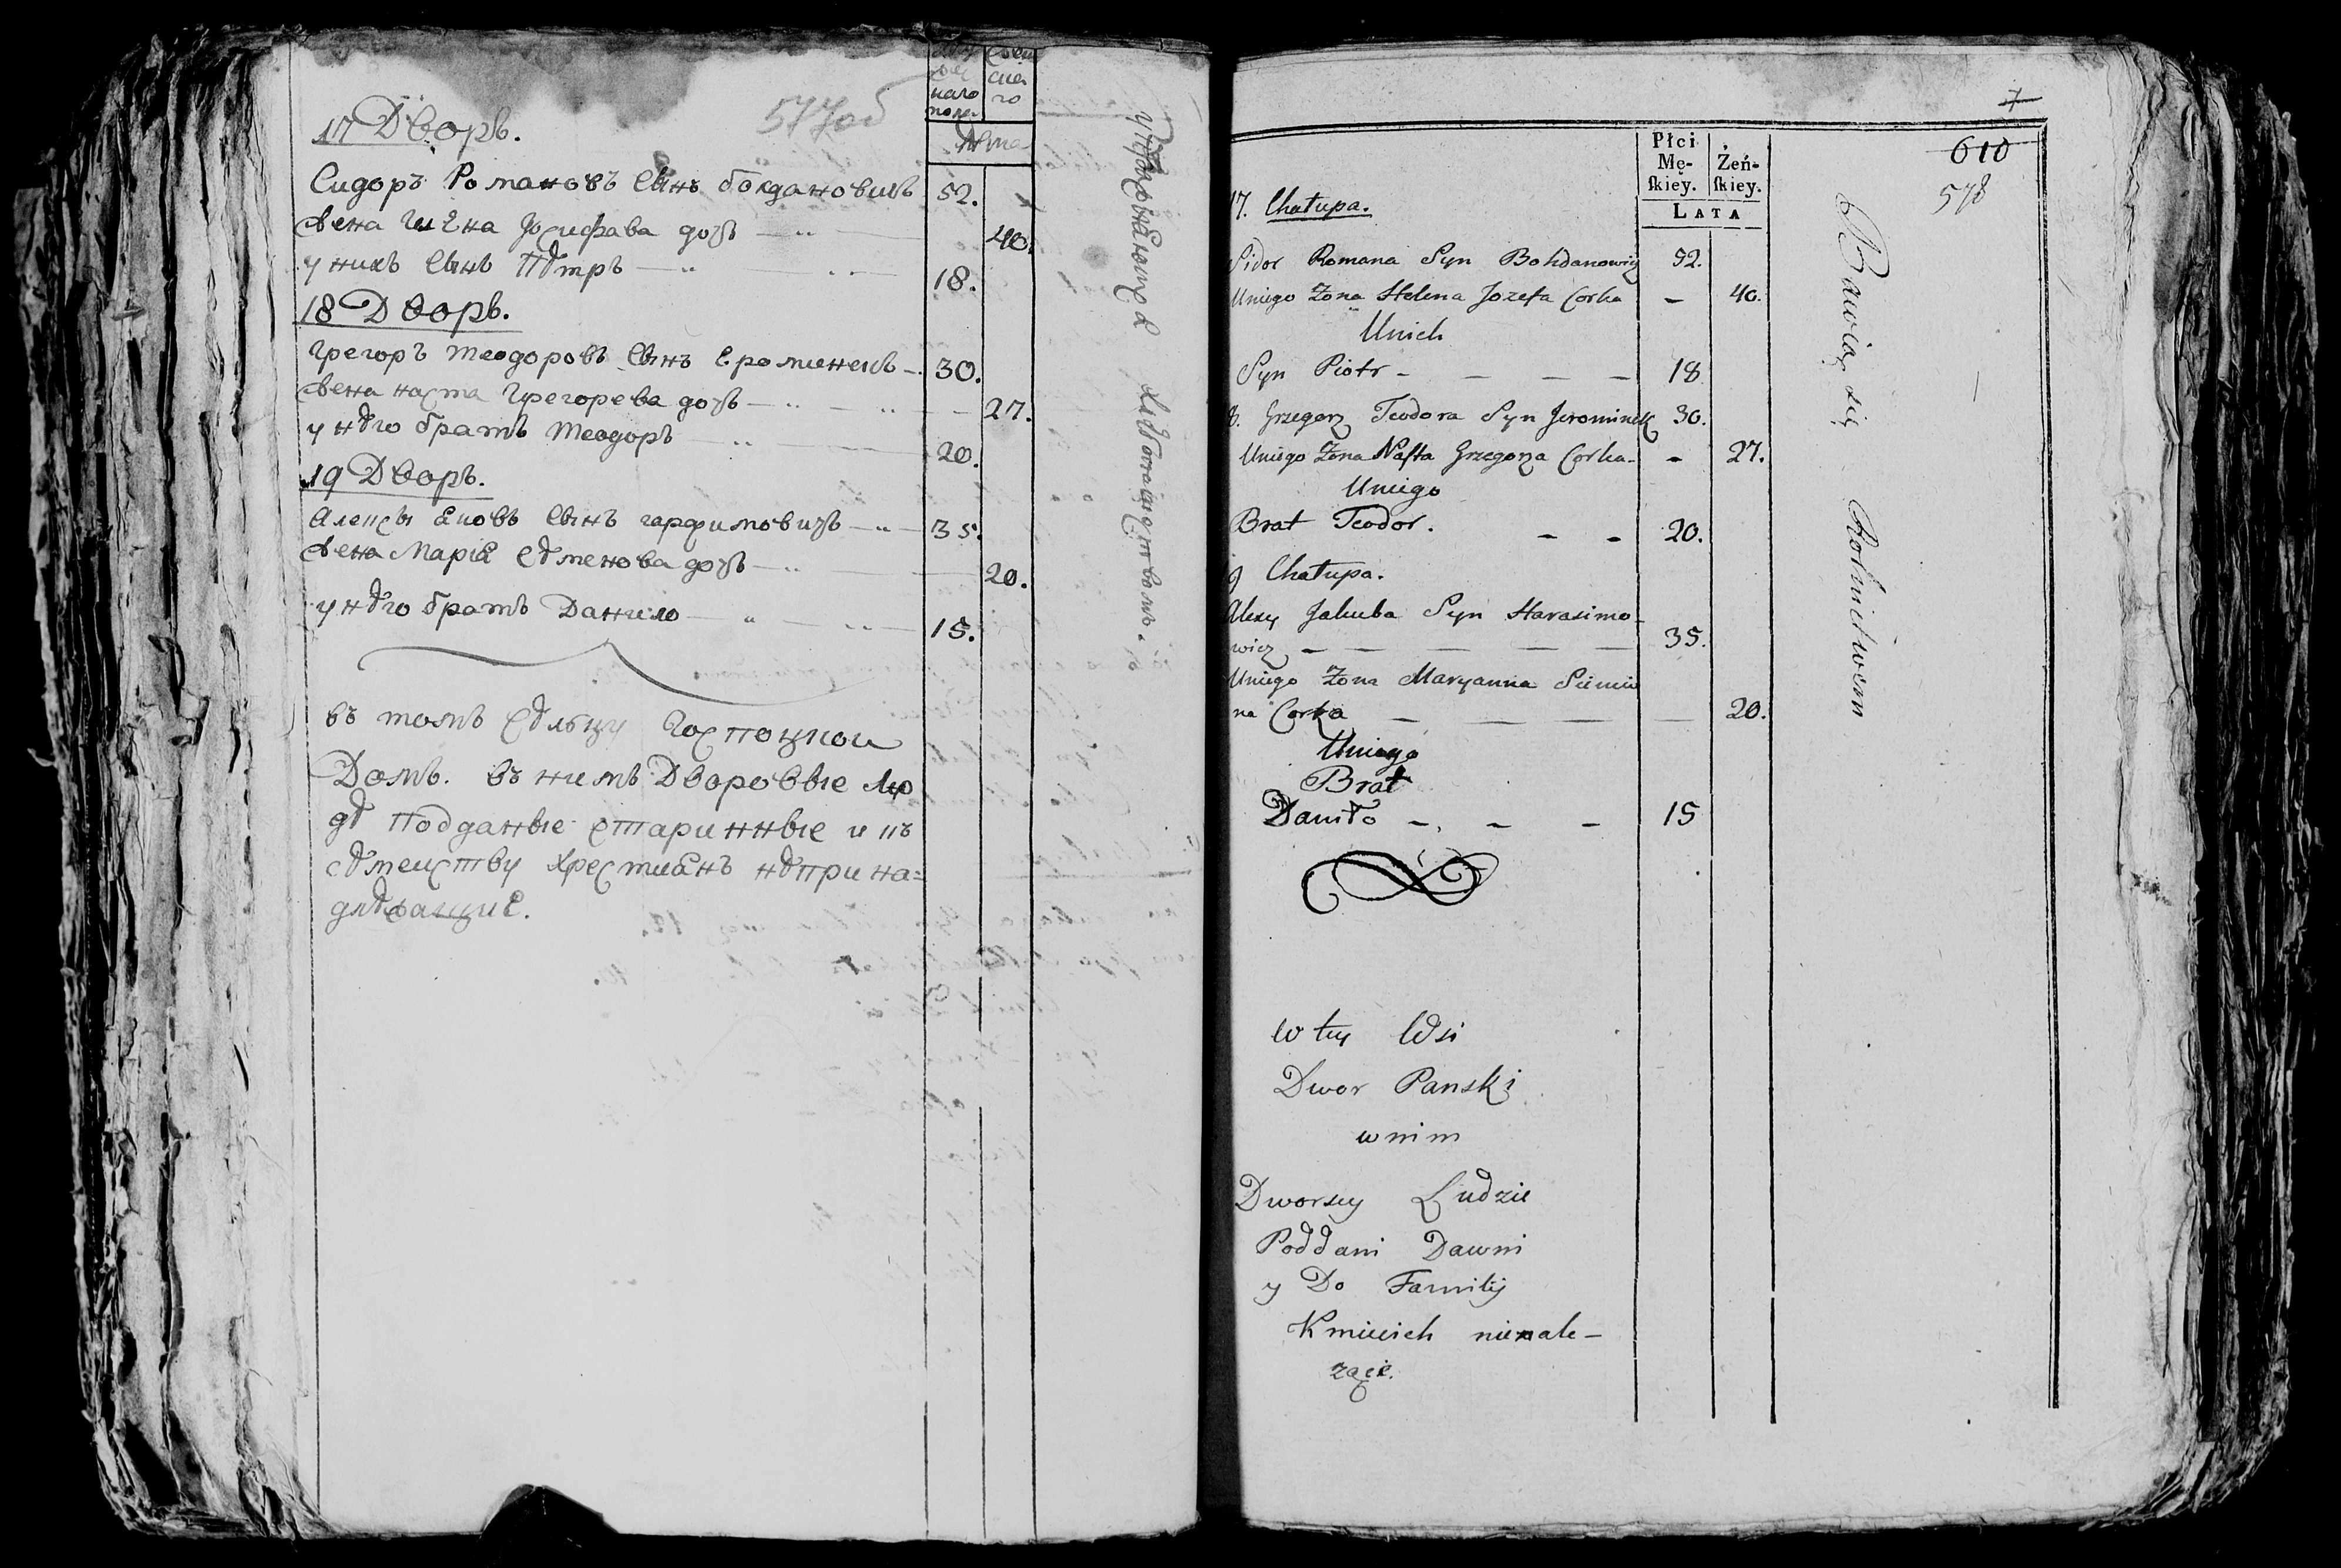 577об
17 Дворъ.
Лета
Сидоръ Романовъ Сынъ богдановичъ 52.
Жена Гелена Josифава дочъ — „ — 40.
у нихъ Сынъ Петръ — „ — 18.
18 Дворъ.
Грегоръ теодоровъ Сынъ Ероминекъ — 30.
Жена наста Грегорева дочъ — „ — „ — 27.
у него братъ теодоръ — „ — 20.
19 Дворъ.
Алексы Яковъ Сынъ гарасимовичъ — „ — 35.
Жена Мария Семенова дочъ — „ — 20.
у него братъ Данило — „ — 15.
въ томъ Сельцу Господской
Домъ. въ нимъ Дворовые лю
де подданые старинные и къ
семейству хрестиянъ непрена=
длежащие.
упражняющия Хлебопашествомъ.
7
610
578
Płci
Mę-
ſkiey.
Żeń-
ſkiey.
LATA
17. Chałupa.
Sidor Romana Syn Bohdanowicz 52.
Uniego Zona Helena Jozefa Corka — 40.
Unich
Syn Piotr — — — — 18
8. Grzegorz Teodora Syn Jerominek 30.
Uniego Zona Naſta Grzegorza Corka - — 27.
Uniego
Brat Teodor. — — 20.
9 Chałupa.
Alexy Jakuba Syn Harasimo-
wicz — — — — — 35.
Uniego Zona Maryanna Siemio
na Corka — — — — 20.
Uniego
Brat
Daniło — — — 15
w tey Wsi
Dwor Panski
w nim
Dworscy Ludzie
Poddani Dawni
y Do Familij
Kmiecich nienale-
zące.
Bawią się Rolnictwem